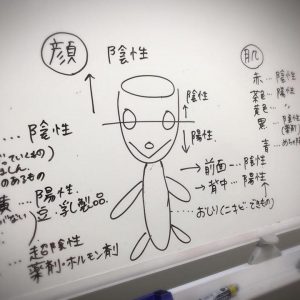 顔
陰性
肌
赤…陰性
茶色…陽性
黄色…〃
黒…陰性
(薬剤)
青…めちゃ
陰性
陽性
…陰性
のあるもの
黄…陽性
豆・乳製品
…超陰性
薬剤・ホルモン剤
前面…陰性
背中…陽性
おしり(ニキビ・できもの)